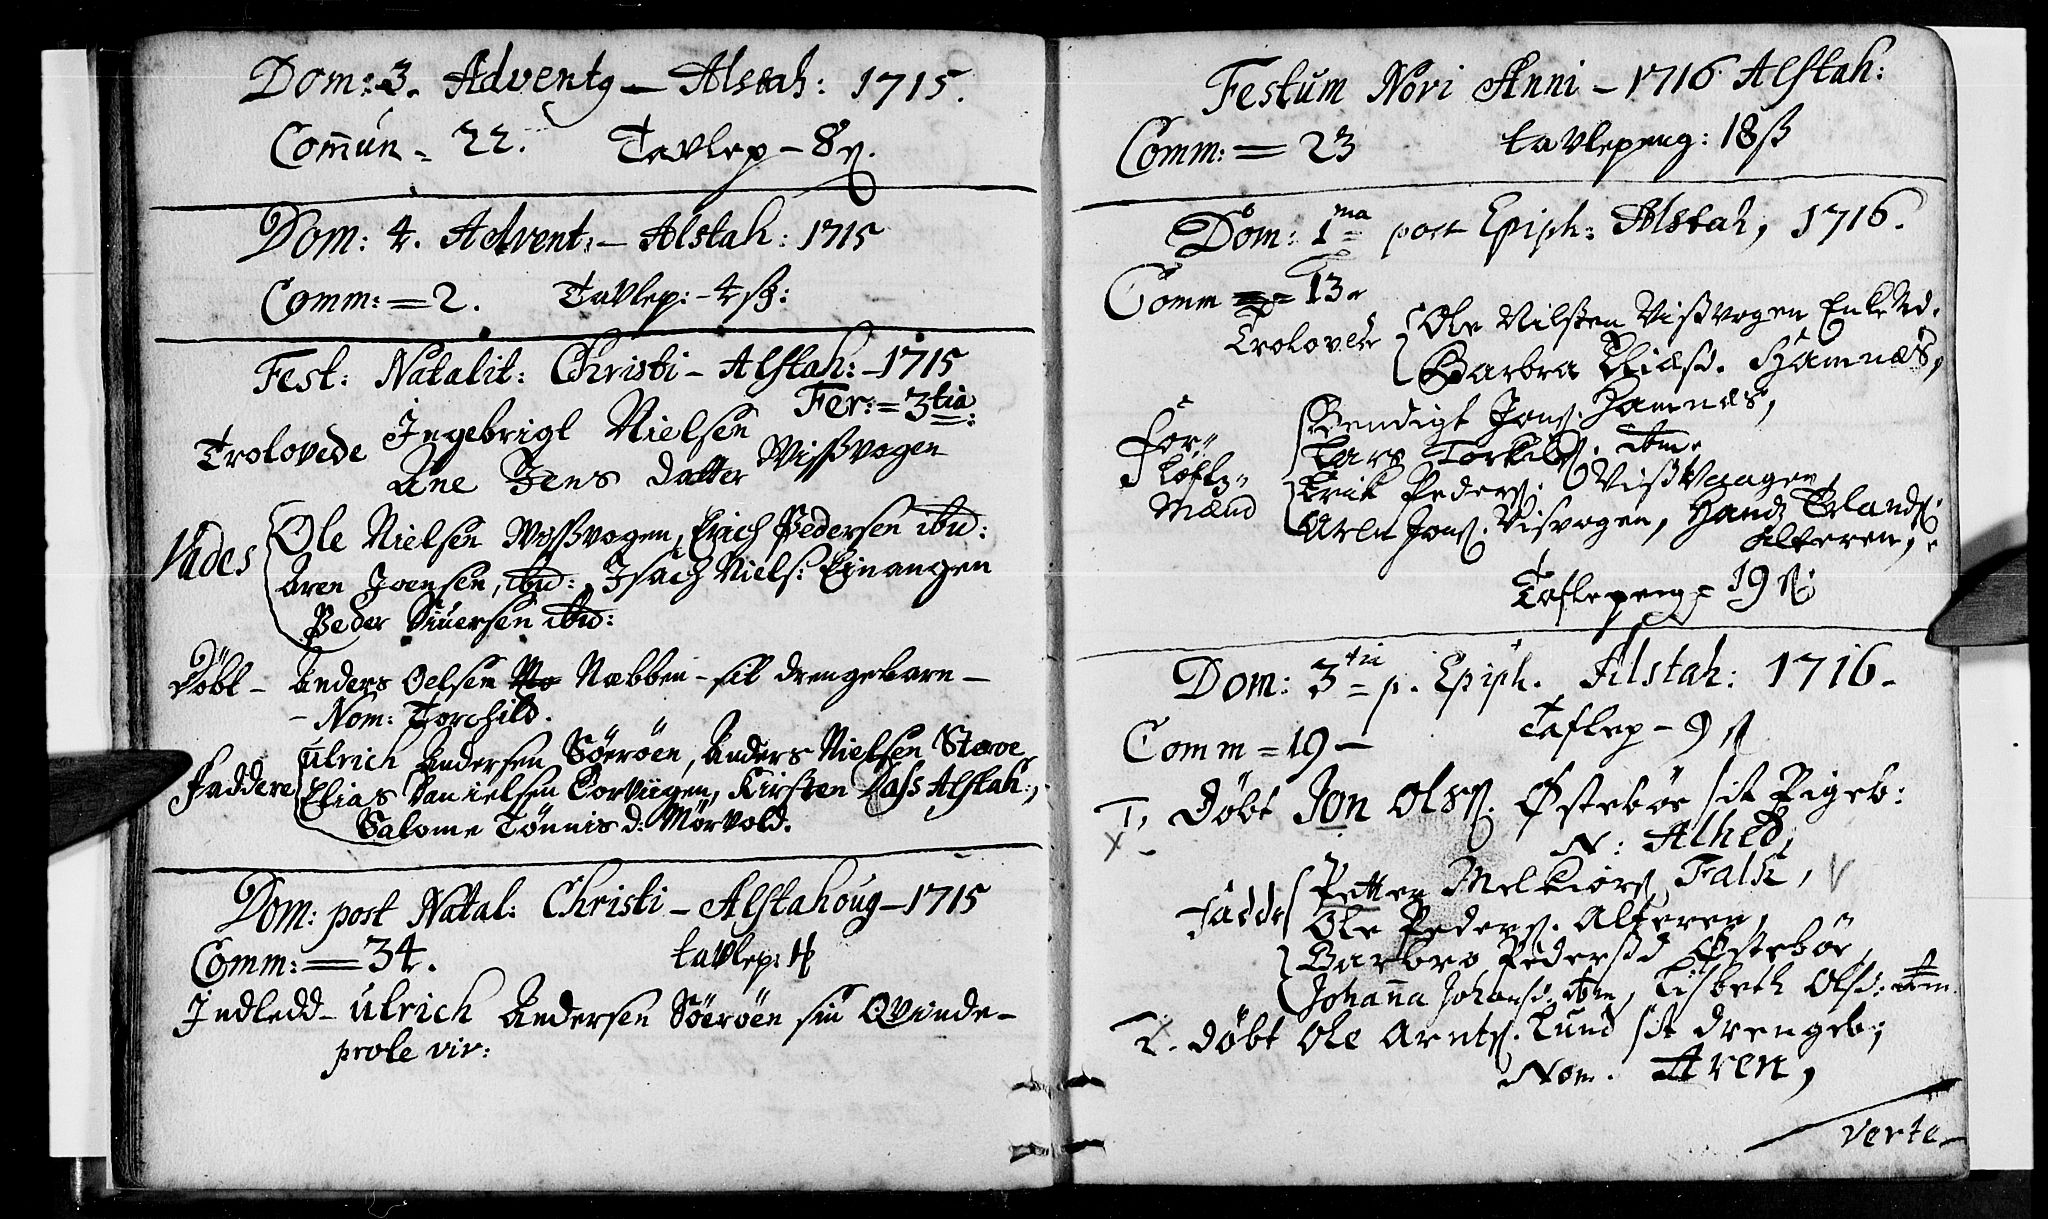 Dom: 3. Advent9 – Alstah: 1715.
Com̄un = 22. Tavlep – 8 ß.
Dom: 4. Advent: – Alstah: 1715
Comm: = 2. Tavlep: – 4 ß:
Fest: Natalit: Christi – Alstah: – 1715
Fer: = 3tia:
Trolovede Ingebrigt Nielsen
Ane Jens datter Wissvogen
Vades Ole Nielsen Wissvogen, Erich Pedersen ibid:
Aren Joensen, ibid: Isach Niels: Einangen
Peder Siuersen ibid:
Döbt – Anders Oelsen Næbben – sit drengebarn –
– Nom: Torchild.
Faddere Ulrich Andersen Söeröen, Anders Nielsen Stavve
Elias Danielsen Torviigen, Kirsten Dass Alstah:,
Salome Tönnis d: Mörvold.
Dom: post Natal: Christi – Alstahoug – 1715
Comm: = 34. tavlep:
Indledd – Ulrich Andersen Söeröen sin Qvinde –
prole vir:
Festum Novi Anni – 1716 Alstah:
Comm: = 23 tavlepeng: 18 ß
Dom: 1ma post Epiph: Alstah, 1716.
Comm = 13
Troloved Ole Nilssen Vissvogen Enke Md.
Barbra Hamnæs,
For- Bendigt Jons. Hamnæs,
løftz- Lars Torkils. ibm.
Mænd Erik Peders. Visswaagen,
Arn Jons. Visvogen, Hans Erlands.
Alteren,
Taflepeng = 19 ß:
Dom: 3tia p. Epiph. Alstah: 1716.
Comm = 19 – Taflep – 9 ß
1, Døbt Jon Ols. Østebøe sit Pigeb:
N: Alhed,
Fadd: Petter Melkiors Falk,
Ole Peders. Alteren,
Barbro Pedersd Østebøe,
Johan̄a Johansd. ibm, Lisbeth Olsd: ibm.
2. Døbt Ole Arnts. Lund sit drengeb;
Nom. Aren,
verte –